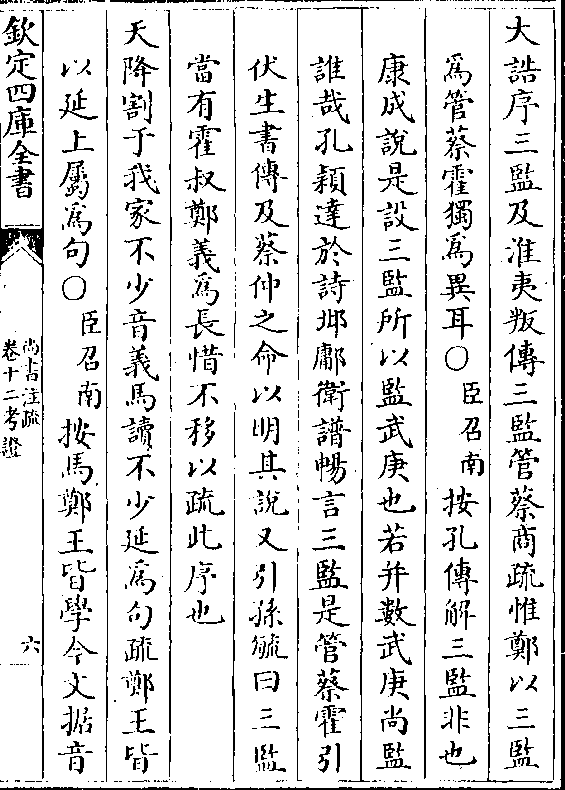 大誥序三監及淮夷叛傳三監管蔡商疏惟鄭以三監
爲管蔡霍獨爲異耳○臣召南按孔傳解三監非也
康成說是設三監所以監武庚也若并數武庚尚監
誰哉孔穎達於詩邶鄘衛譜暢言三監是管蔡霍引
伏生書傳及蔡仲之命以明其說又引孫毓曰三監
當有霍叔鄭義爲長惜不移以疏此序也
天降割于我家不少音義馬讀不少延爲句疏鄭王皆
以延上屬爲句○臣召南按馬鄭王皆學今文据音
欽定四庫全書
尚書注疏
卷十二考證
六